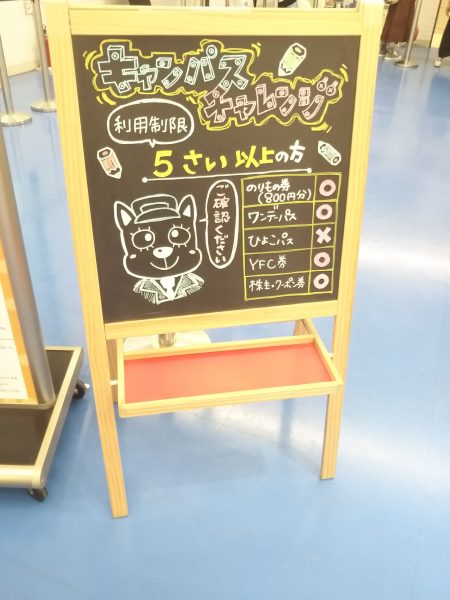 キャンパス
チャレンジ
利用制限
5さい以上の方
ご確認ください
のりもの券
(800円分) ○
ワンデーパス ○
ひよこパス ×
YFC券 ○
株主・クーポン券 ○